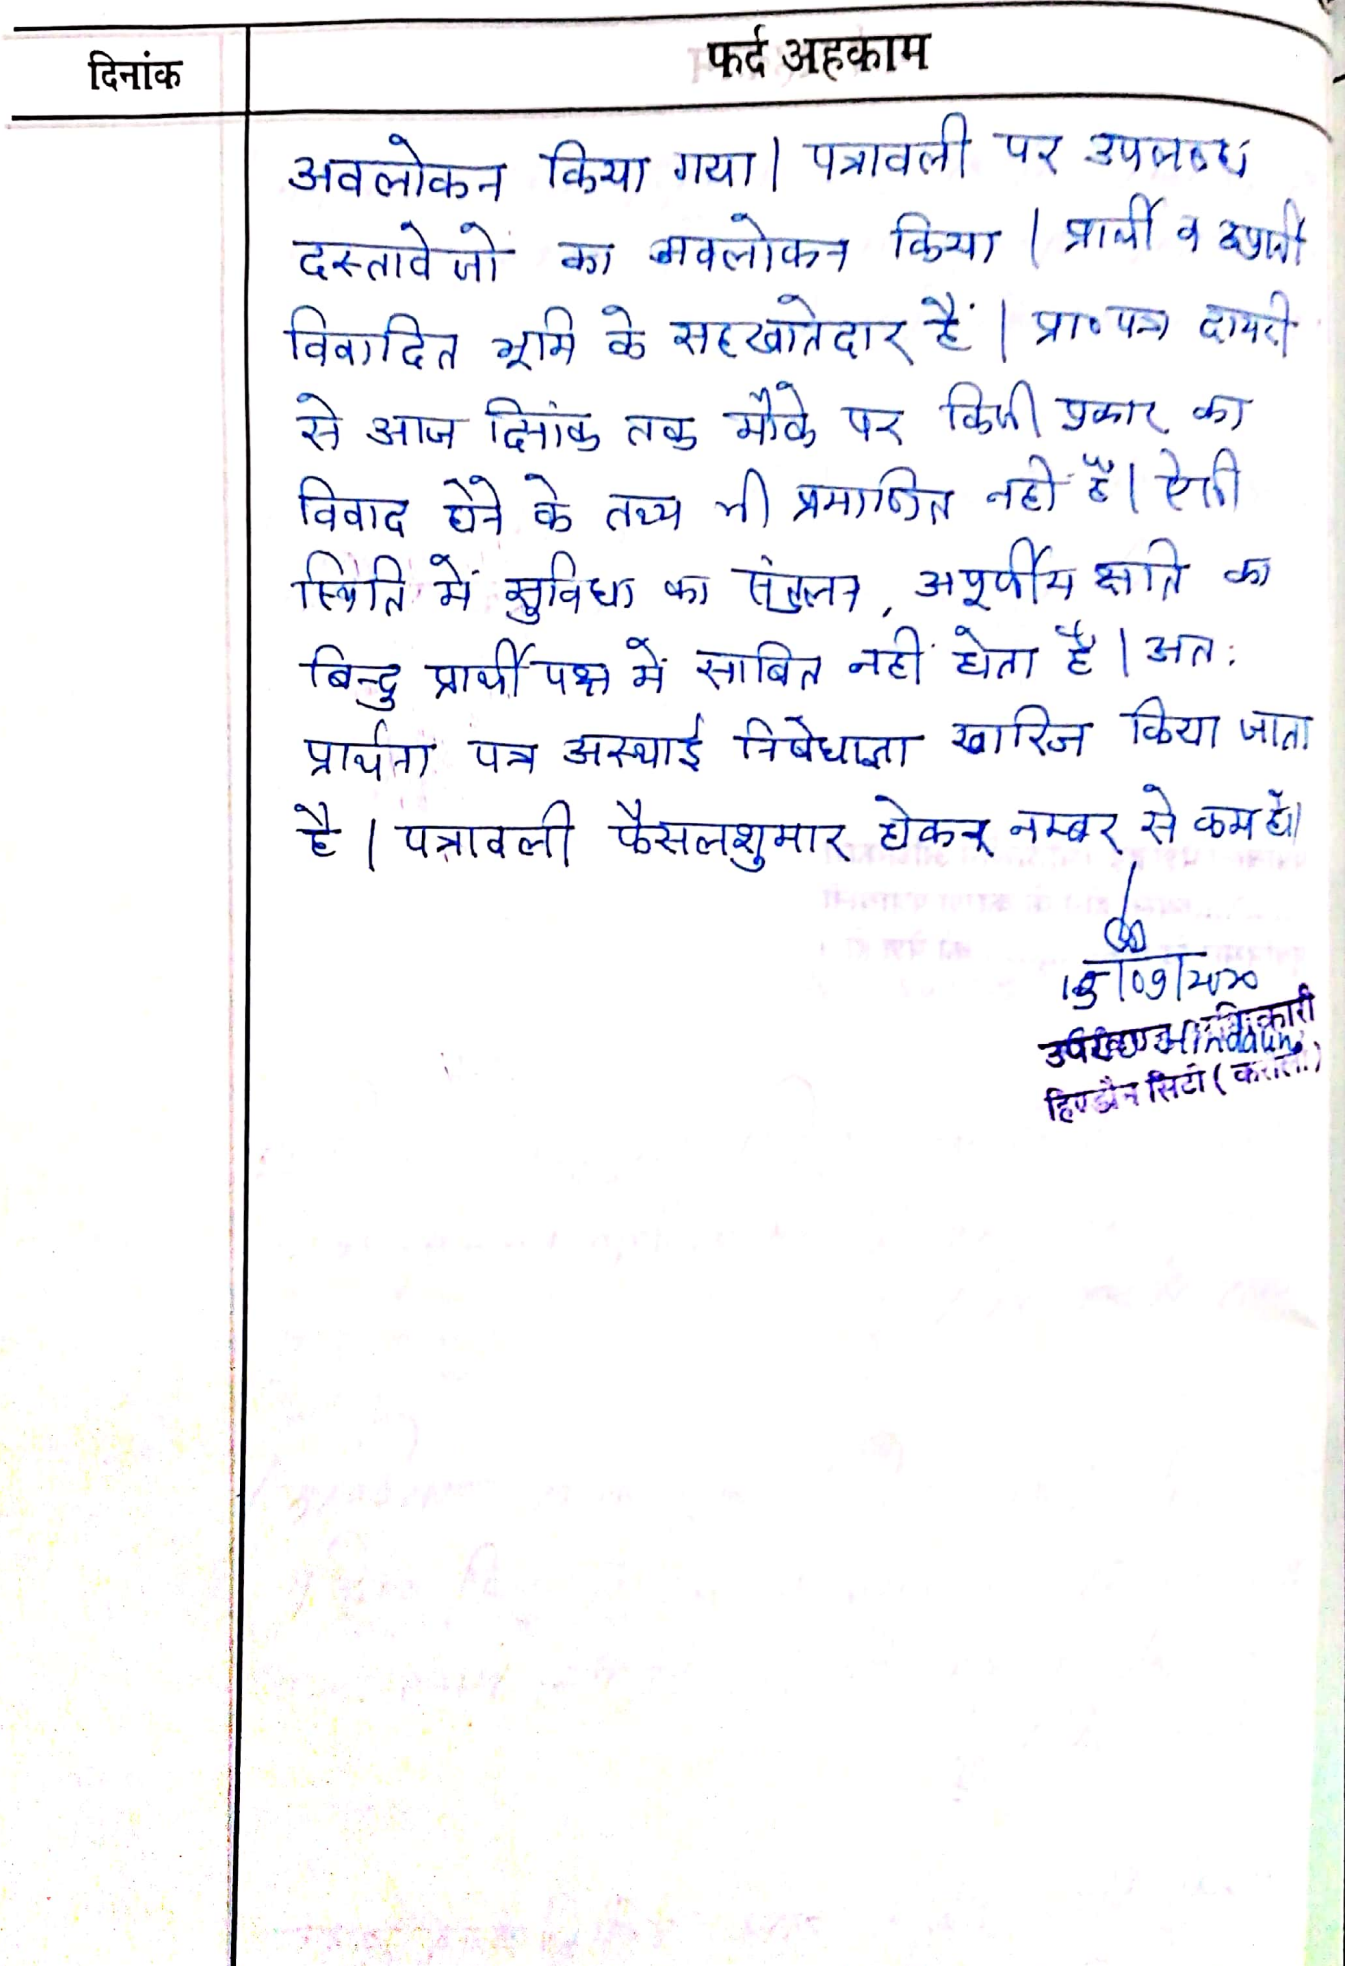 दिनांक
फर्द अहकाम
अवलोकन किया गया। पत्रावली पर उपलब्ध
दस्तावेजों का अवलोकन किया। प्रार्थी व अप्रार्थी
विवादित भूमि के सहखातेदार हैं। प्रा०पत्र दायरी
से आज दिनांक तक मौके पर किसी प्रकार का
विवाद होने के तथ्य भी प्रमाणित नहीं है। ऐसी
स्थिति में सुविधा का संतुलन, अपूर्णीय क्षति का
बिन्दु प्रार्थी पक्ष में साबित नहीं होता है। अत:
प्रार्थना पत्र अस्थाई निषेधाज्ञा खारिज किया जाता
है। पत्रावली फैसलशुमार होकर नम्बर से कम हो।
/09/2020
हिण्डौन सिटी (करौली)